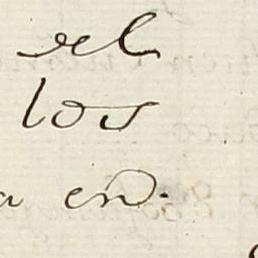 del
los
a en